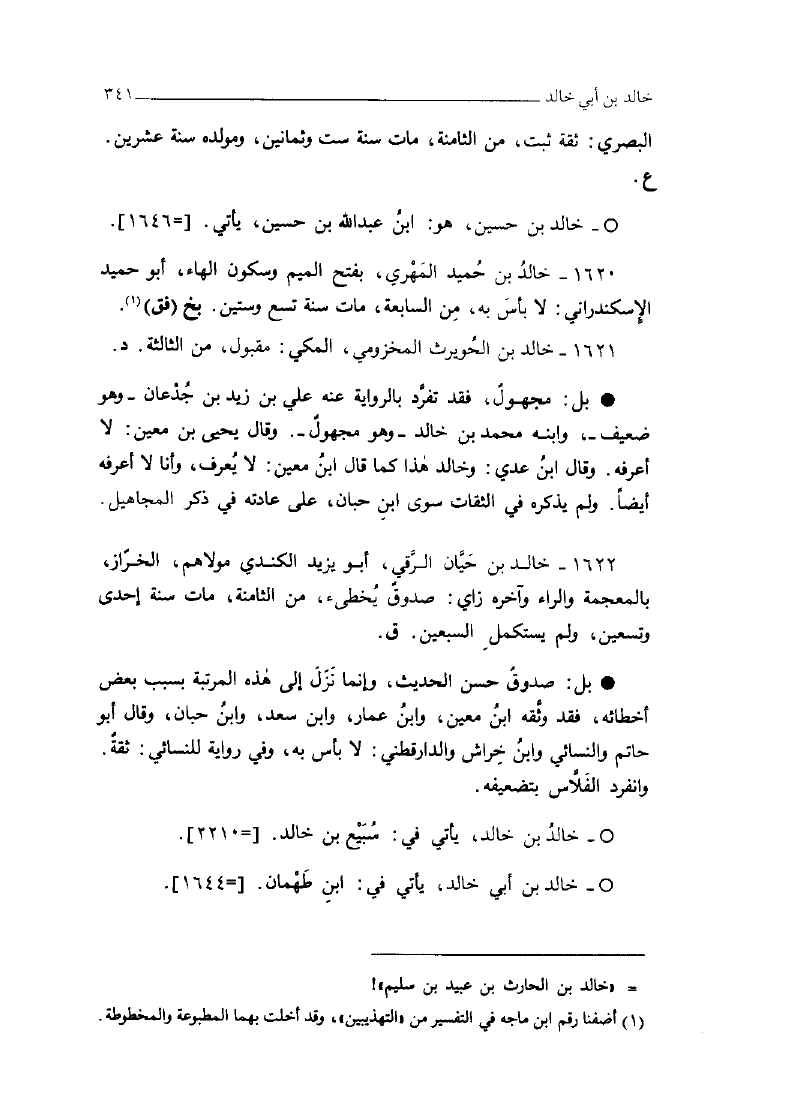 خالد بن أبي خالد ٣٤١
البصري: ثقة ثبت، من الثامنة، مات سنة ست وثمانين، ومولده سنة عشرين.
ع.
○ ـ خالد بن حسين، هو: ابنُ عبدالله بن حسين، يأتي. [=١٦٤٦].
١٦٢٠ ـ خالدُ بن حُميد المَهْري، بفتح الميم وسكون الهاء، أبو حميد
الإسكندراني: لا بأسَ به، مِن السابعة، مات سنة تسع وستين. بخ (فق)(١).
١٦٢١ ـ خالد بن الحُويرث المخزومي، المكي: مقبول، من الثالثة. د.
● بل: مجهولٌ، فقد تفرَّد بالرواية عنه علي بن زيد بن جُدْعان ـ وهو
ضعيف ـ، وابنه محمد بن خالد ـ وهو مجهولٌ ـ. وقال يحيى بن معين: لا
أعرفه. وقال ابنُ عدي: وخالد هٰذا كما قال ابنُ معين: لا يُعرف، وأنا لا أعرفه
أيضاً. ولم يذكره في الثقات سوى ابنِ حبان، على عادته في ذكر المجاهيل.
١٦٢٢ ـ خالد بن حَيَّان الرَّقي، أبو يزيد الكندي مولاهم، الخرّاز،
بالمعجمة والراء وآخره زاي: صدوقٌ يُخطىء، من الثامنة، مات سنة إحدى
وتسعين، ولم يستكملِ السبعين. ق.
● بل: صدوقٌ حسن الحديث، وإنما نَزَلَ إلى هٰذه المرتبة بسبب بعض
أخطائه، فقد وثَّقه ابنُ معين، وابنُ عمار، وابن سعد، وابنُ حبان، وقال أبو
حاتم والنسائي وابنُ خِراش والدارقطني: لا بأس به، وفي رواية للنسائي: ثقةٌ.
وانفرد الفَلَّاس بتضعيفه.
○ ـ خالدُ بن خالد، يأتي في: سُبَيْع بن خالد. [=٢٢١٠].
○ ـ خالد بن أبي خالد، يأتي في: ابنِ طَهْمان. [=١٦٤٤].
= «خالد بن الحارث بن عبيد بن سليم»!
(١) أضفنا رقم ابن ماجه في التفسير من «التهذيبين»، وقد أخلت بهما المطبوعة والمخطوطة.